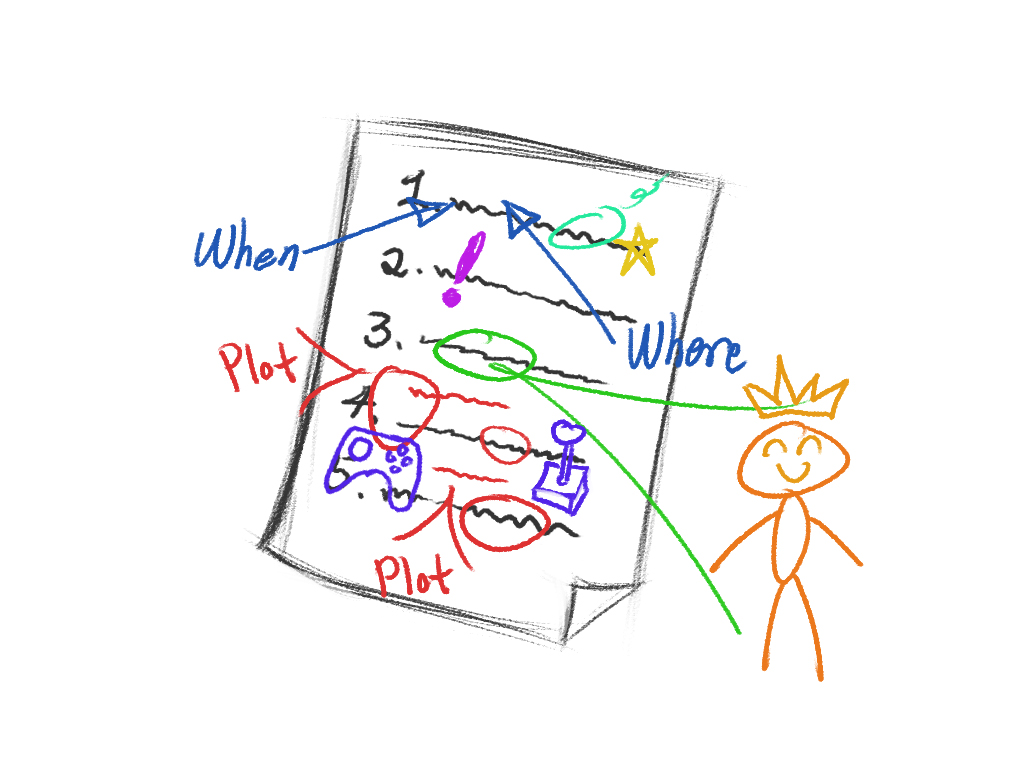 1.
When
2.
3.
Where
Plot
4.
Plot